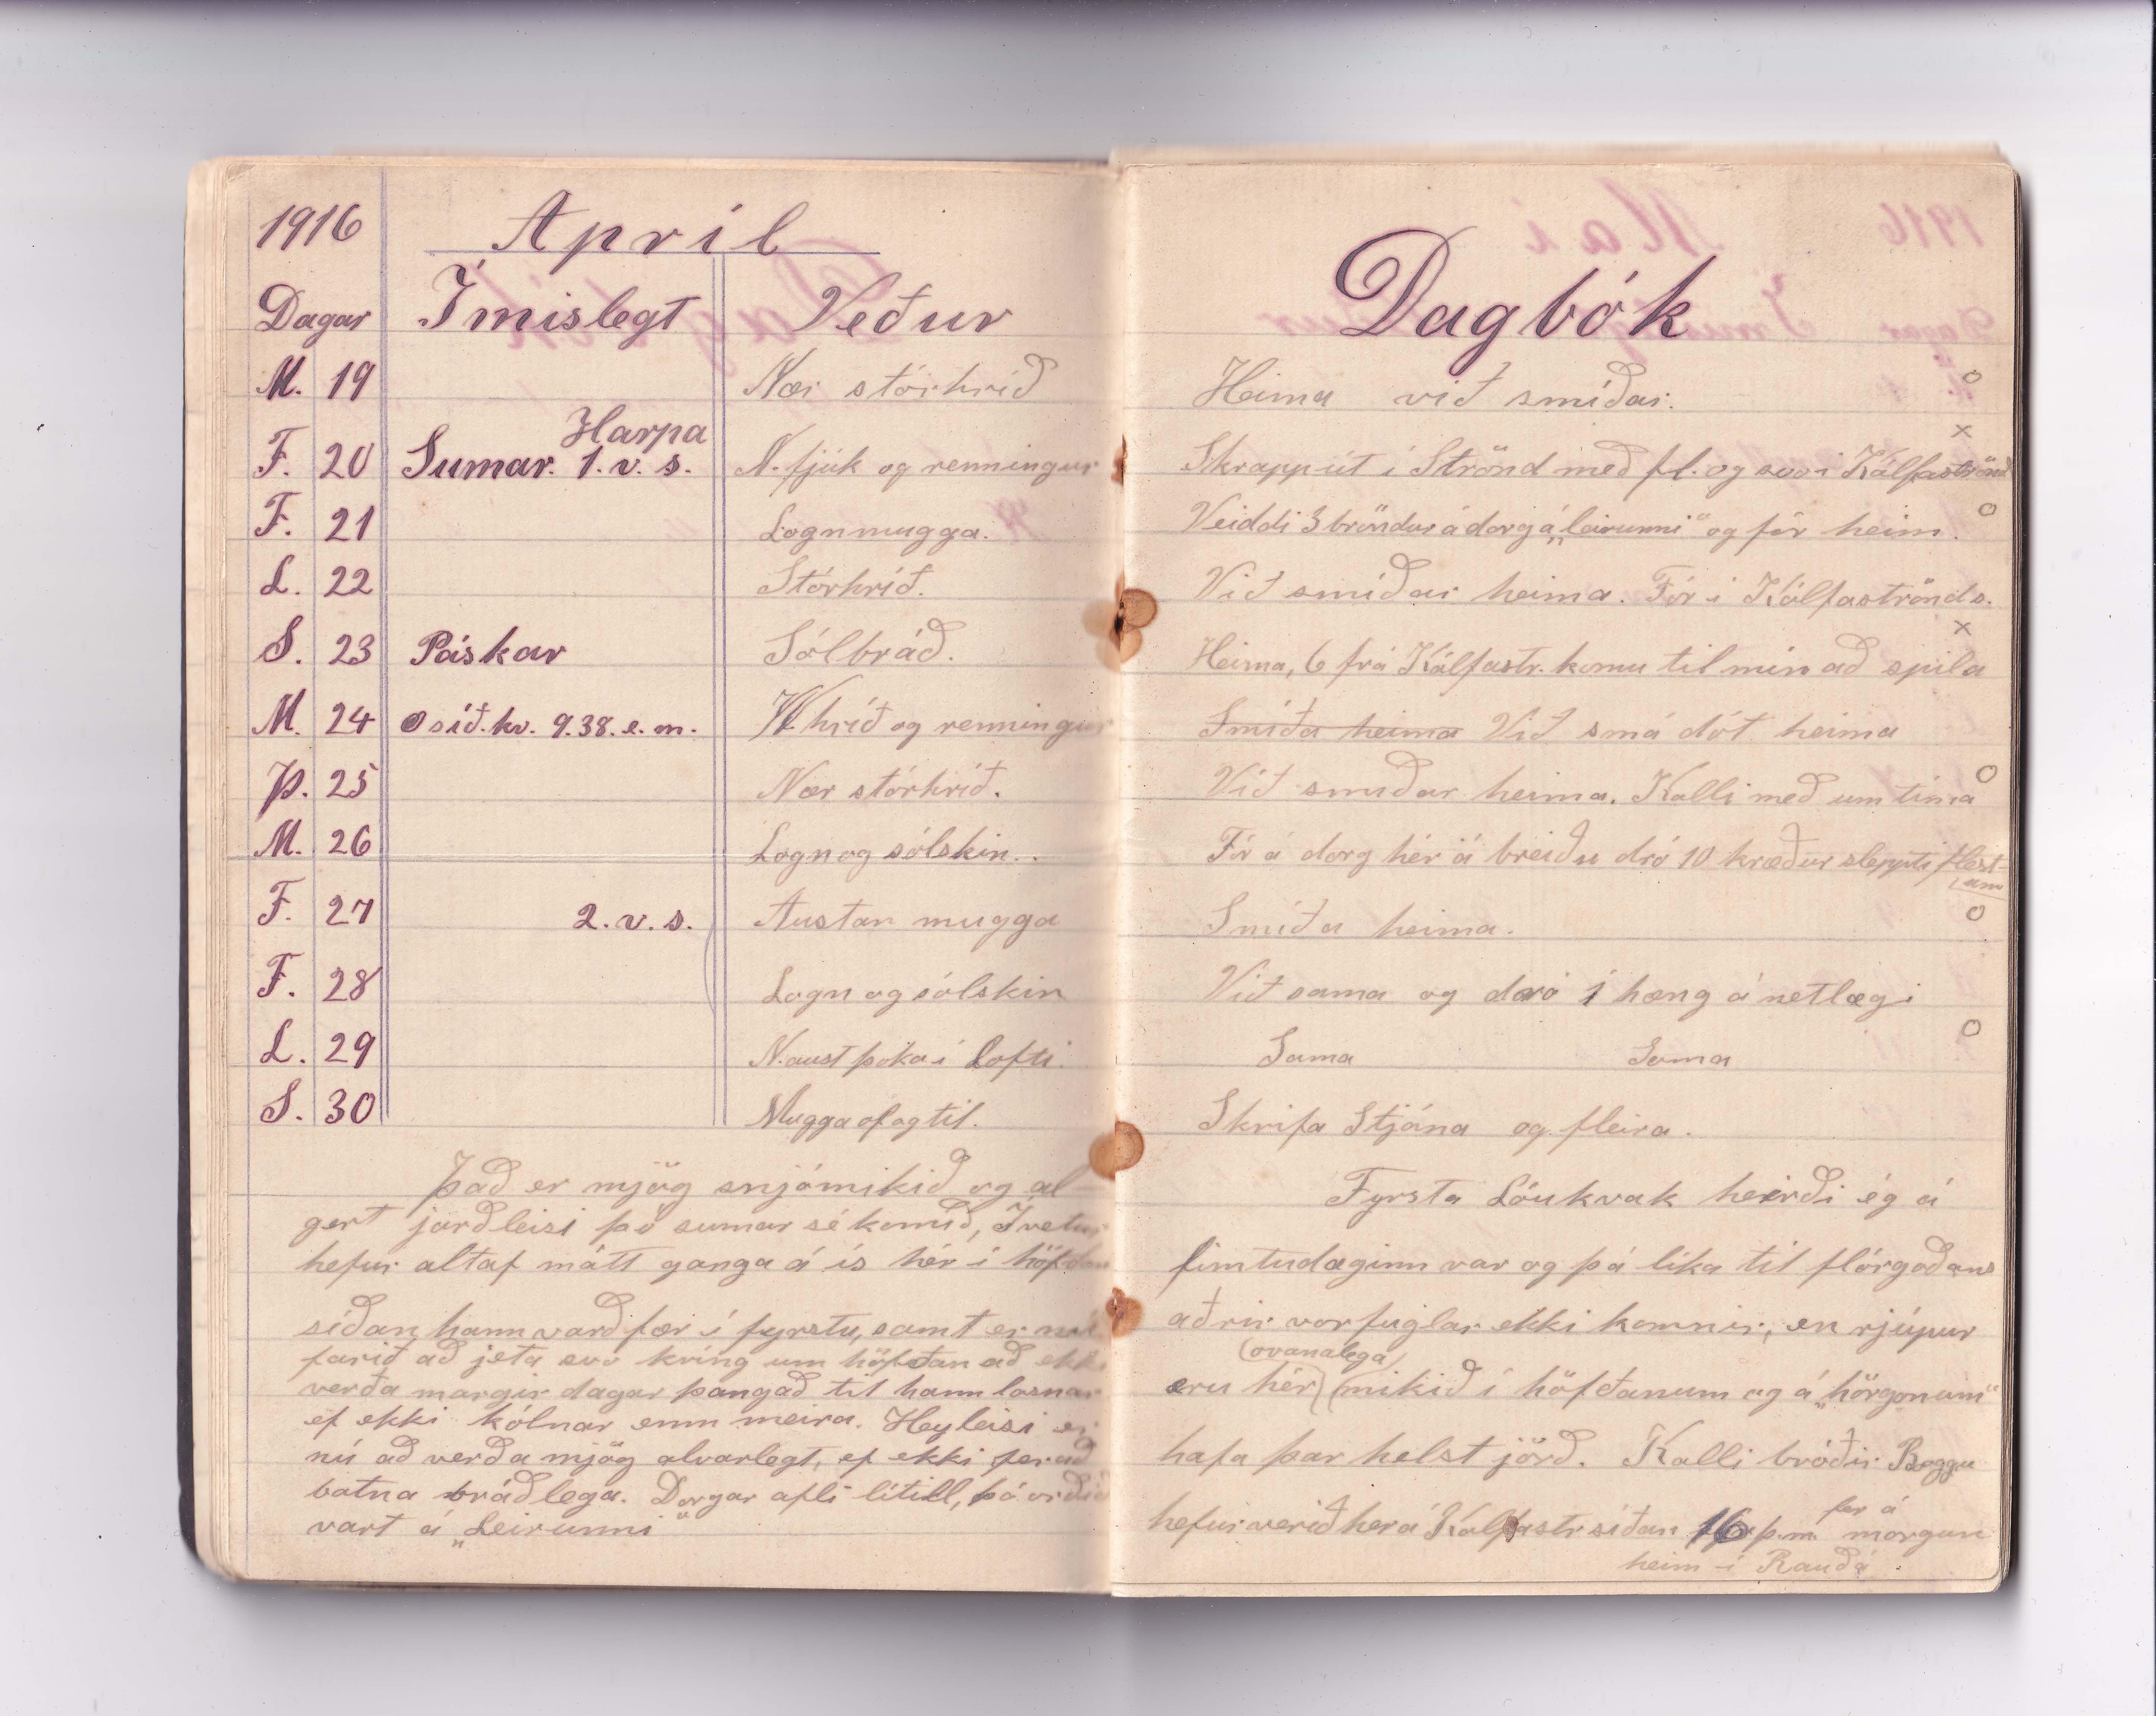 1916 Apríl
Dagar Ímislegt Veður
M. 19 Nær stórhríð
Harpa
F. 20 Sumar. 1. v. s. N. fjúk og renningur
F. 21 Lognmugga.
L. 22 Stórhríð.
S. 23 Páskar Sólbráð.
M. 24 síð. kv. 9.38. e. m. N hríð og renningur
Þ. 25 Nær stórhríð.
M. 26 Logn og sólskin..
F. 27 2. v. s. Austan mugga
F. 28 Logn og sólskin
L. 29 N. aust þoka í lofti.
S. 30 Mugga of og til.
Það er mjög snjómikið og al
gert jarðleisi þó sumar sé komið, Í vetur
hefur altaf mátt ganga á ís hér í
síðan hann varð fær í fyrstu, samt er
farið að jeta svo kríng um höfðan að
verða margir dagar þangað til hann losnar
ef ekki kólnar enn meira. Heyleisi er
nú að verða mjög alvarlegt, ef ekki fer að
batna bráðlega. Dorgar afli lítill, þó
vart á „Leirunni"
Dagbók
Heima við smíðar. o
x
Skrapp út í Strönd með fl. og svo i Kálfaströnd
Veiddi 3 bröndur á dorg á „leirunni" og fór heim. o
Við smíðar heima. Fór í Kálfaströnd s.
x
Heima, 6 frá Kálfastr. komu til mín að spila
Smíða heima Við smá dót heima
Við smíðar heima. Kalli með um tíma o
Fór á dorg hér á breiðu dró 10 kræður sleppti flest-
um
Smíða heima. o
Við sama og dró 1 hæng á netlægi
Sama Sama o
Skrifa Stjána og fleira.
Fyrsta Lóukvak heirði ég á
fimtudaginn var og þá líka til flórgoðans
aðrir vorfuglar ekki komnir, en rjúpur
(ovanalega)
eru hér mikið í höfðanum og á „hörgonum"
hafa þar helst jörð. Kalli bróðir Boggu
hefur verið her á Kálfastr síðan 16 þ.m. fer á
morgun
heim í Rauðá